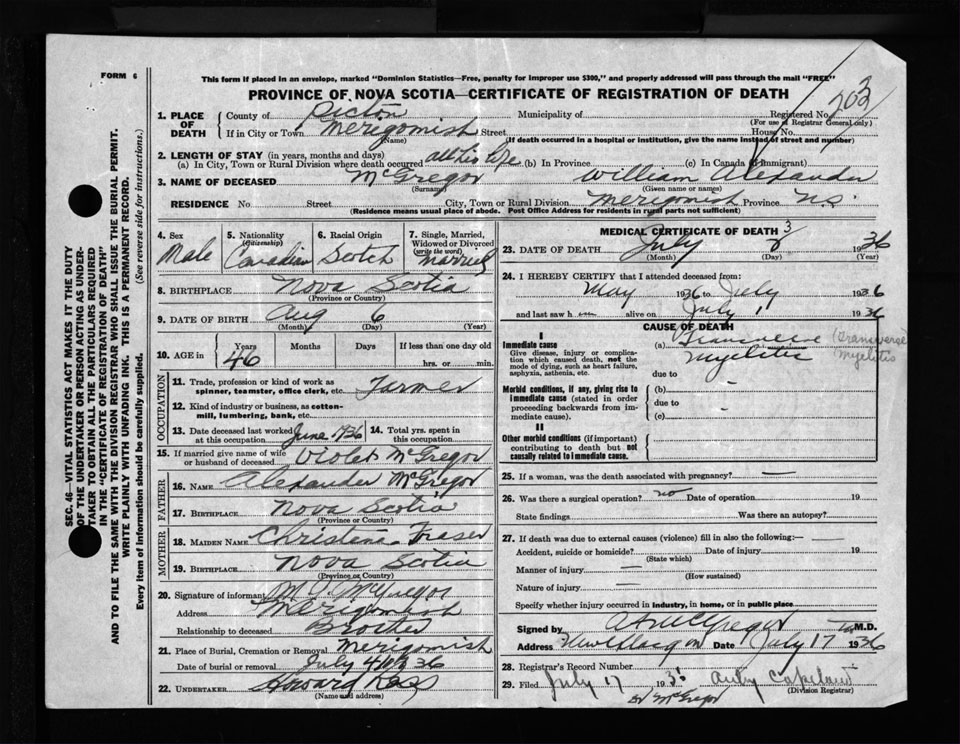 FORM 6
This form if placed in an envelope, marked "Dominion Statistics—Free, penalty for improper use $300," and properly addressed will pass through the mail "FREE"
PROVINCE OF NOVA SCOTIA—CERTIFICATE OF REGISTRATION OF DEATH
1. PLACE OF DEATH
County of Pictou Municipality of Registered No. 203
(For use of Registrar General only)
If in City or Town Merigomish Street House No.
(Name) (If death occurred in a hospital or institution, give the name instead of street and number)
2. LENGTH OF STAY (in years, months and days)
(a) In City, Town or Rural Division where death occurred all his life (b) In Province (c) In Canada (if immigrant)
3. NAME OF DECEASED McGregor William Alexander
(Surname) (Given name or names)
RESIDENCE No Street City, Town or Rural Division Merigomish Province N.S.
(Residence means usual place of abode. Post Office Address for residents in rural parts not sufficient)
4. Sex
Male
5. Nationality (Citizenship)
Canadian
6. Racial Origin
Scotch
7. Single, Married, Widowed or Divorced (write the word)
Married
8. BIRTHPLACE Nova Scotia
(Province or Country)
9. DATE OF BIRTH Aug 6
(Month) (Day) (Year)
10. AGE in Years Months Days If less than one day old
46 hrs. or min.
OCCUPATION
11. Trade, profession or kind of work as spinner, teamster, office clerk, etc. Farmer
12. Kind of industry or business, as cotton-mill, lumbering, bank, etc.
13. Date deceased last worked at this occupation June 1936
14. Total yrs. spent in this occupation
15. If married give name of wife or husband of deceased Violet McGregor
FATHER
16. NAME Alexander McGregor
17. BIRTHPLACE Nova Scotia
(Province or Country)
MOTHER
18. MAIDEN NAME Christena Fraser
19. BIRTHPLACE Nova Scotia
(Province or Country)
20. Signature of informant McGregor
Address Merigomish
Relationship to deceased Brother
21. Place of Burial, Cremation or Removal Merigomish
Date of burial or removal July 4th 1936
22. UNDERTAKER Howard Ross
(Name and address)
MEDICAL CERTIFICATE OF DEATH
3
23. DATE OF DEATH July 1936
(Month) (Day) (Year)
24. I HEREBY CERTIFY that I attended deceased from:
May 1936 to July 1936
and last saw h im alive on July 1 1936
CAUSE OF DEATH
I
Immediate cause
Give disease, injury or complication which caused death, not the mode of dying, such as heart failure, asphyxia, asthenia, etc.
(a) Myelitis (Transverse Myelitis
due to
Morbid conditions, if any, giving rise to immediate cause (stated in order proceeding backwards from immediate cause).
(b) –
due to
(c) –
II
Other morbid conditions (if important) contributing to death but not causally related to immediate cause.
25. If a woman, was the death associated with pregnancy? —
26. Was there a surgical operation? no Date of operation 19
State findings Was there an autopsy?
27. If death was due to external causes (violence) fill in also the following:—
Accident, suicide or homicide? Date of injury 19
(State which)
Manner of injury —
(How sustained)
Nature of injury —
Specify whether injury occurred in industry, in home, or in public place
Signed by McGregor M.D.
Address New Glasgow Date July 17 1936
28. Registrar's Record Number
29. Filed July 17 193 Copeland
(Division Registrar)
Dr McGregor
SEC. 46—VITAL STATISTICS ACT MAKES IT THE DUTY
OF THE UNDERTAKER OR PERSON ACTING AS UNDER-
TAKER TO OBTAIN ALL THE PARTICULARS REQUIRED
IN THE "CERTIFICATE OF REGISTRATION OF DEATH"
AND TO FILE THE SAME WITH THE DIVISION REGISTRAR WHO SHALL ISSUE THE BURIAL PERMIT.
WRITE PLAINLY WITH UNFADING INK. THIS IS A PERMANENT RECORD.
Every item of information should be carefully supplied. (See reverse side for instructions.)